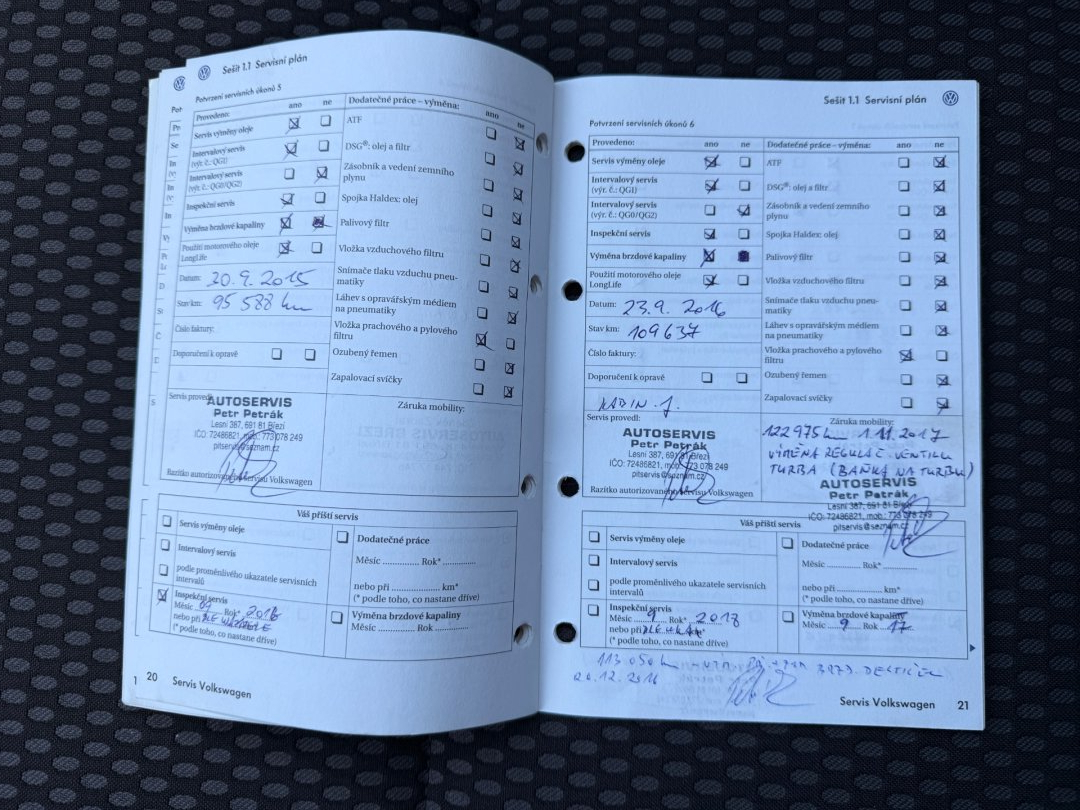 Sešit 1.1 Servisní plán
Potvrzení servisních úkonů 5
Provedeno: ano ne
Servis výměny oleje
Intervalový servis
(výr. č.: QG1)
Intervalový servis
(výr. č.: QG0/QG2)
Inspekční servis
Výměna brzdové kapaliny
Použití motorového oleje
LongLife
Datum: 30.9.2015
Stav km: 95 588 km
Číslo faktury:
Doporučení k opravě
Dodatečné práce – výměna: ano ne
ATF
DSG®: olej a filtr
Zásobník a vedení zemního
plynu
Spojka Haldex: olej
Palivový filtr
Vložka vzduchového filtru
Snímače tlaku vzduchu pneu-
matiky
Láhev s opravářským médiem
na pneumatiky
Vložka prachového a pylového
filtru
Ozubený řemen
Zapalovací svíčky
Servis provedl:
AUTOSERVIS
Petr Petrák
Lesní 387, 691 81 Březí
IČO: 72486821, mob.: 773 078 249
pitservis@seznam.cz
Razítko autorizovaného servisu Volkswagen
Záruka mobility:
Váš příští servis
Servis výměny oleje
Intervalový servis
podle proměnlivého ukazatele servisních
intervalů
Inspekční servis
Měsíc 09 Rok* 2016
nebo při
(* podle toho, co nastane dříve)
Dodatečné práce
Měsíc .............. Rok* ..............
nebo po .............. km*
(* podle toho, co nastane dříve)
Výměna brzdové kapaliny
Měsíc .............. Rok ..............
1 20 Servis Volkswagen
Sešit 1.1 Servisní plán
Potvrzení servisních úkonů 6
Provedeno: ano ne
Servis výměny oleje
Intervalový servis
(výr. č.: QG1)
Intervalový servis
(výr. č.: QG0/QG2)
Inspekční servis
Výměna brzdové kapaliny
Použití motorového oleje
LongLife
Datum: 23.9. 2016
Stav km: 109637
Číslo faktury:
Doporučení k opravě
Dodatečné práce – výměna: ano ne
ATF
DSG®: olej a filtr
Zásobník a vedení zemního
plynu
Spojka Haldex: olej
Palivový filtr
Vložka vzduchového filtru
Snímače tlaku vzduchu pneu-
matiky
Láhev s opravářským médiem
na pneumatiky
Vložka prachového a pylového
filtru
Ozubený řemen
Zapalovací svíčky
Servis provedl:
AUTOSERVIS
Petr Petrák
Lesní 387, 691 81 Březí
IČO: 72486821, mob.: 773 078 249
pitservis@seznam.cz
Razítko autorizovaného servisu Volkswagen
Záruka mobility:
122975 km 1.11.2017
VÝMĚNA REGULAČ. VENTILU
TURBA (BAŇKA NA TURBU)
AUTOSERVIS
Petr Petrák
Lesní 387, 691 81 Březí
IČO: 72486821, mob.: 773 078 249
pitservis@seznam.cz
Váš příští servis
Servis výměny oleje
Intervalový servis
podle proměnlivého ukazatele servisních
intervalů
Inspekční servis
Měsíc 9 Rok* 2018
nebo při
(* podle toho, co nastane dříve)
Dodatečné práce
Měsíc .............. Rok* ..............
nebo po .............. km*
(* podle toho, co nastane dříve)
Výměna brzdové kapaliny
Měsíc 9 Rok 17
113 050 km
20.12.2016
Servis Volkswagen 21